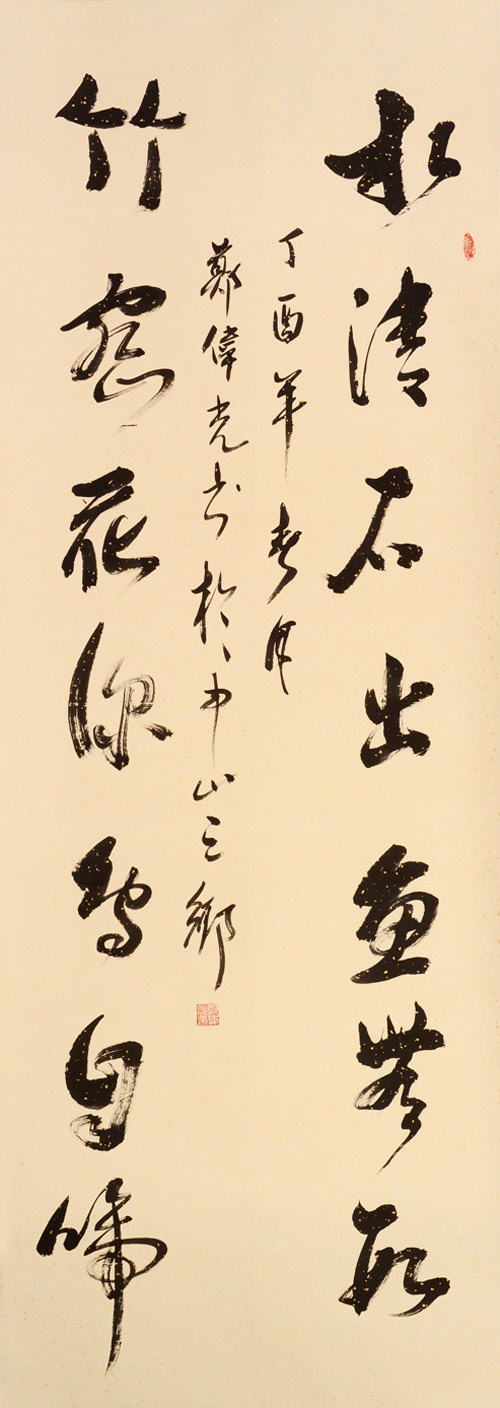 水清石出魚無數
竹密花深鳥自啼
丁酉年春月
鄭偉光書於中山三鄉